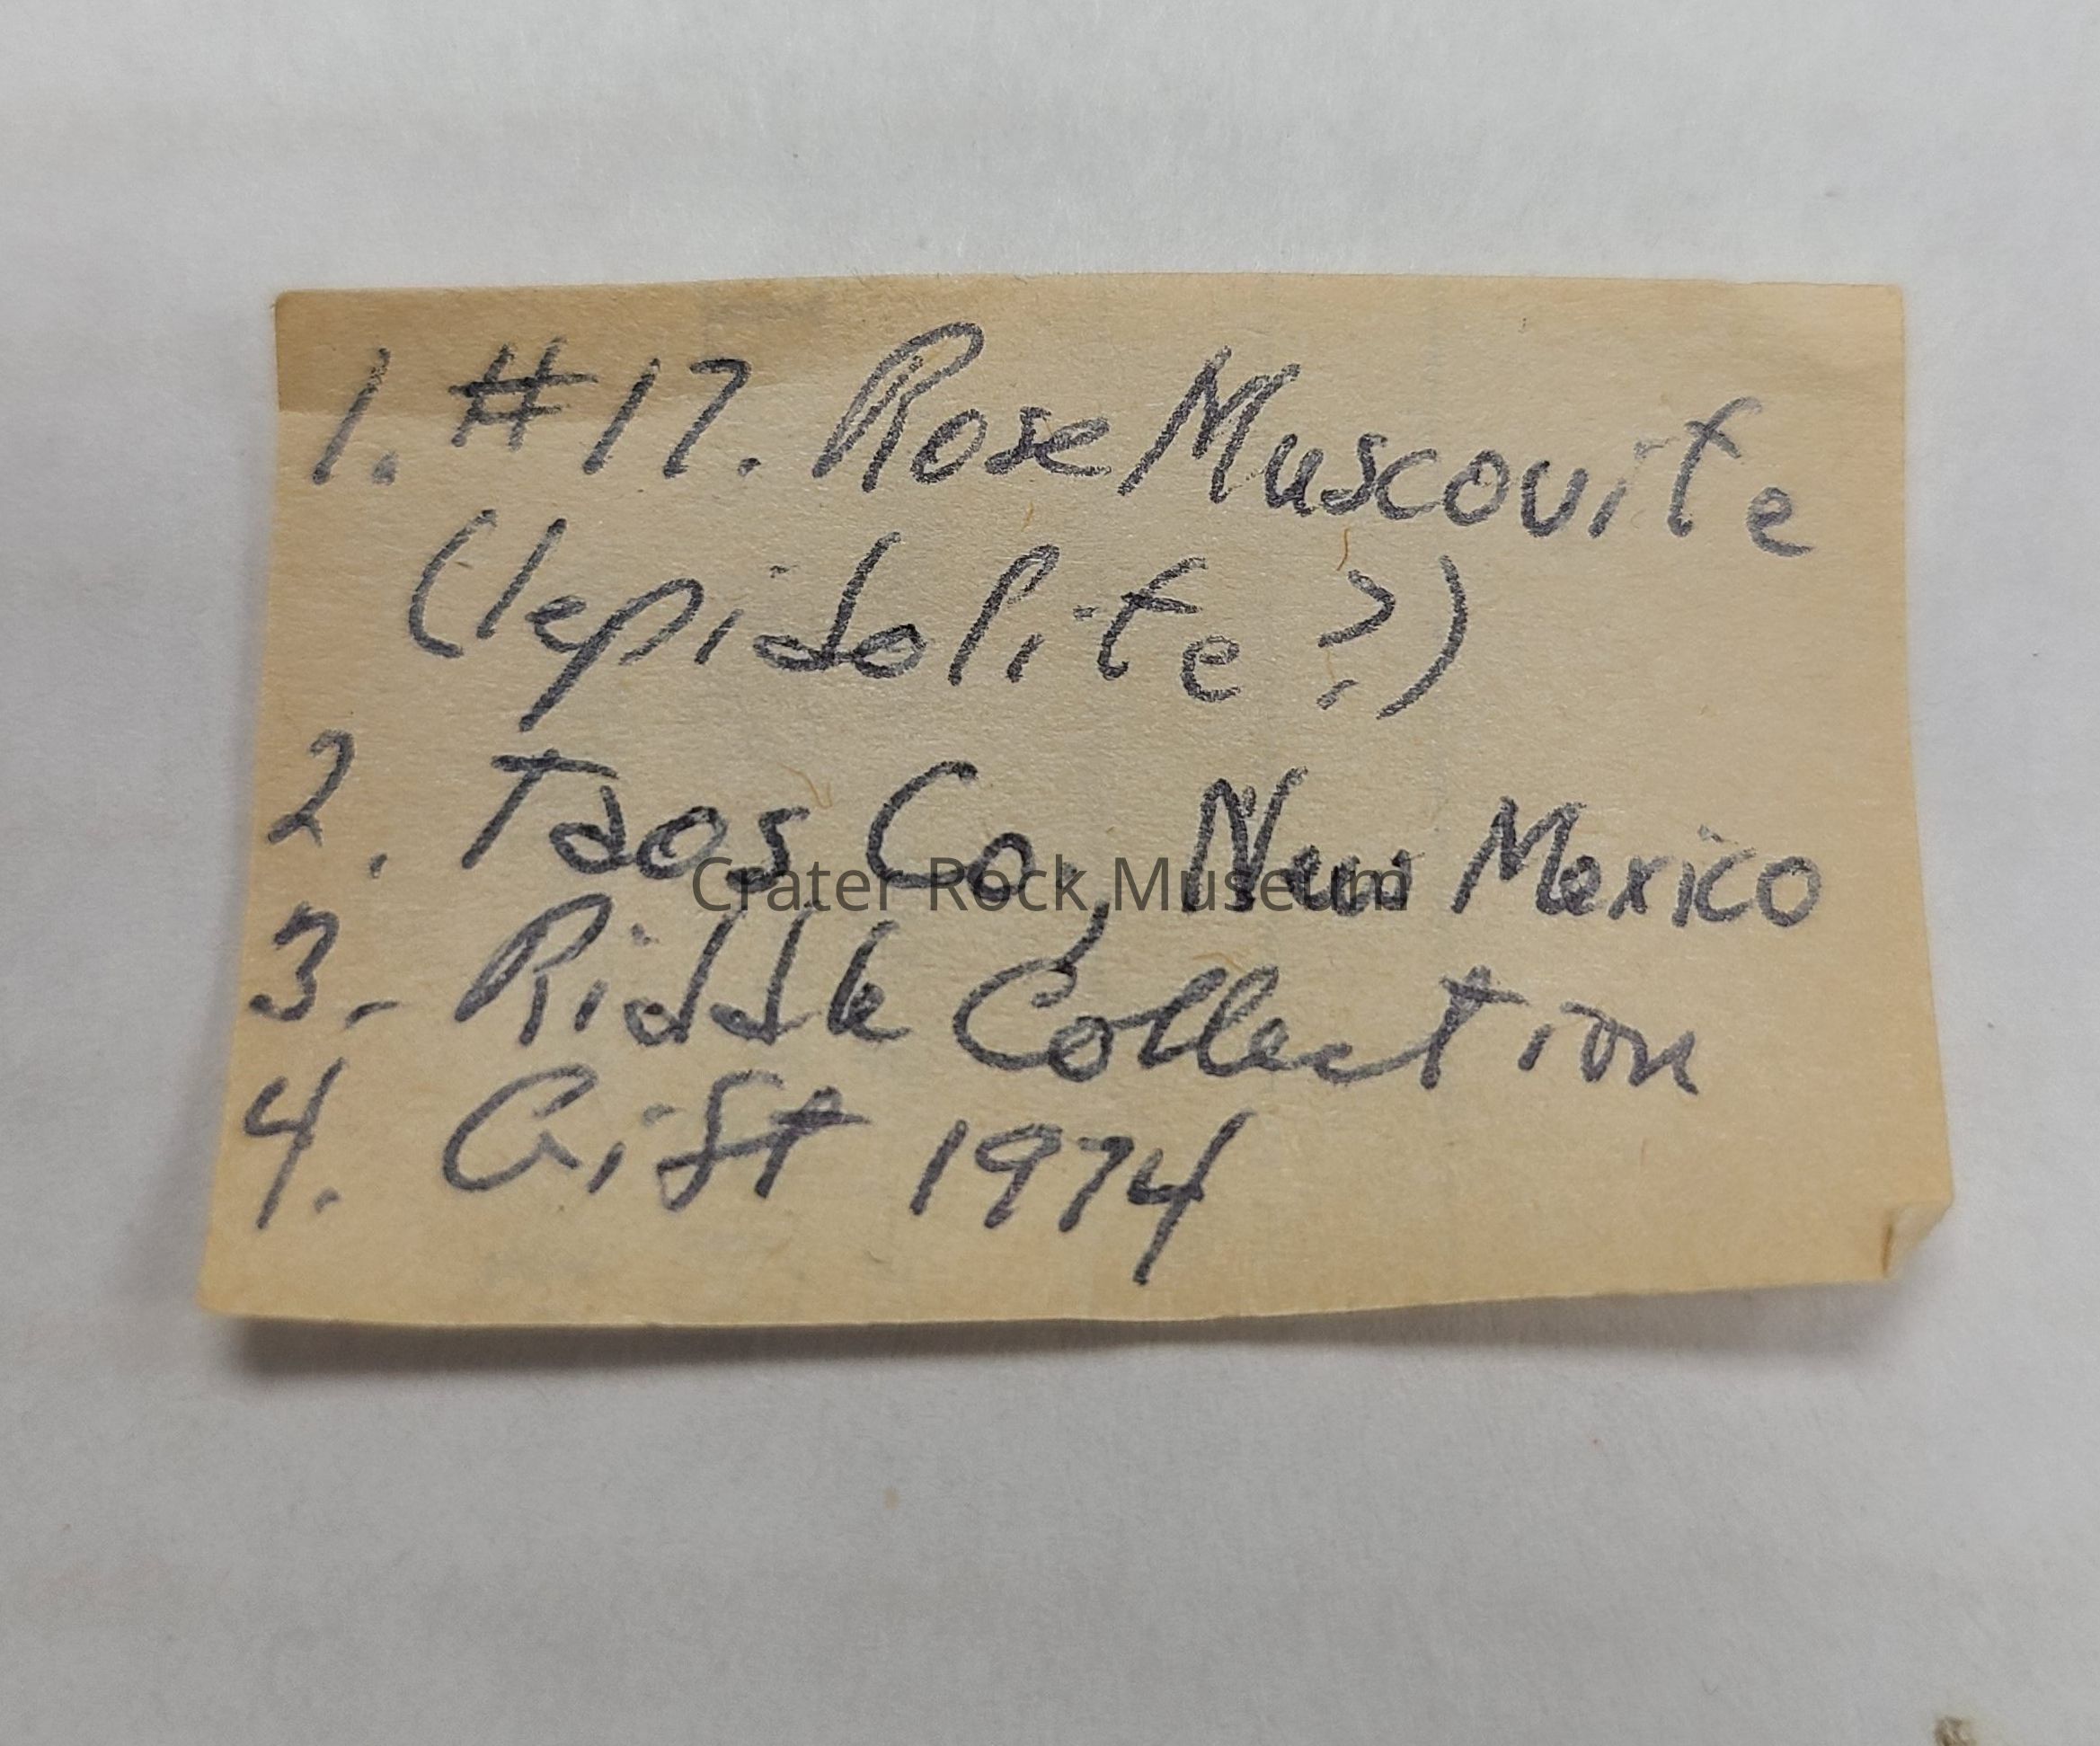 1. #17. Rose Muscovite
(lepidolite?)
2. Taos Co., New Mexico
Crater Rock Museum
3. Riddle Collection
4. Gift 1974